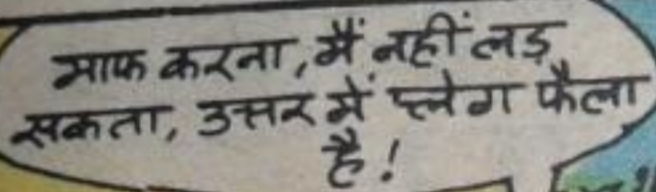 माफ करना, मैं नहीं लड़
सकता, उत्तर में प्लेग फैला
है!